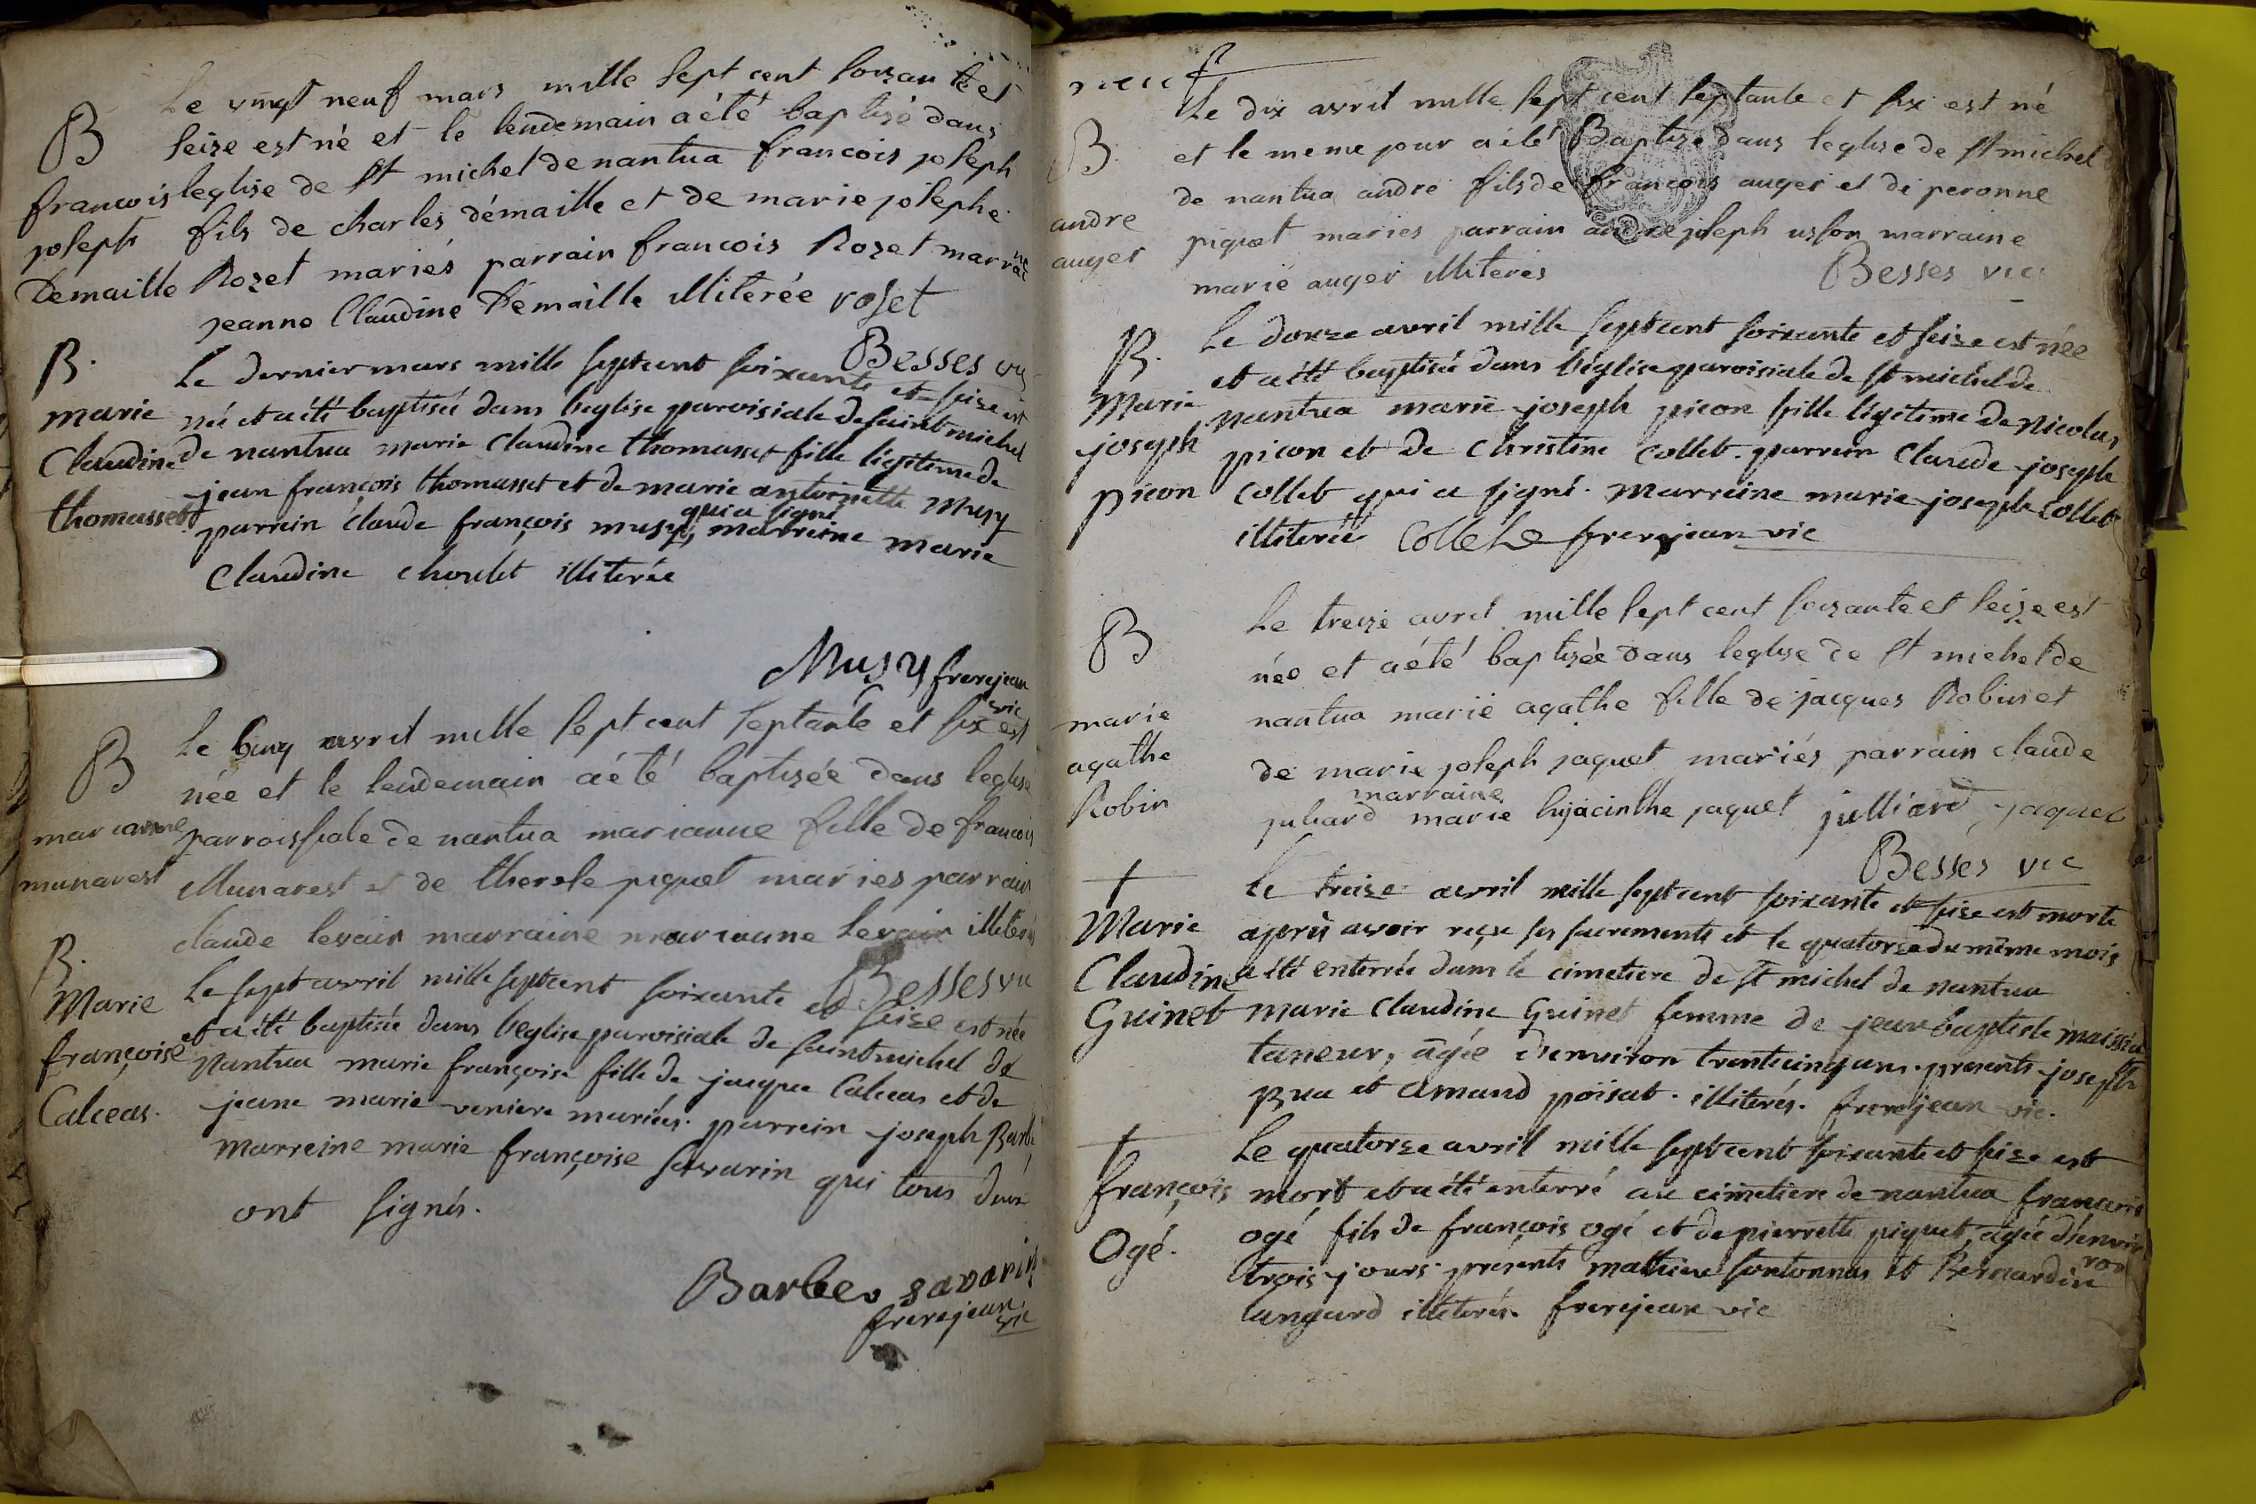 B
francois
joseph
Demaille
Le vingt neuf mars mille sept cent soixante et
seize est né et le lendemain a été baptisé dans
leglise de st michel de nantua francois joseph
fils de charles démaille et de marie josephe
Rozet mariés parrain francois Rozet marraine
jeanne Claudine Démaille illiterée roset
Besses
B.
marie
Claudine
thomasset
Le dernier mars mille sept cent soixante et seize est
né et a été baptisée dans l'eglise paroisiale de saint michel
de nantua marie Claudine thomasset fille légitime de
jean françois thomasset et de marie antoinette Musy
parrein claude françois musy, qui a signé marreine marie
Claudine choulet illiterée
Musy frerejean
vic
B
marianne
munarest
Le cinq avril mille sept cent septante et six est
née et le lendemain a été baptizée dans leglise
parroissiale de nantua marianne fille de francois
Munarest et de therese piquet mariés parrain
claude levair marraine marianne levair
Besses vic
B.
Marie
françoise
Calceas.
Le sept avril mille sept cent soixante et seize est née
et a été baptisée dans l'eglise paroisiale de saint michel de
nantua marie françoise fille de jacque Calceas et de
jeane marie veniere mariés. parrein joseph Barbe
marreine marie françoise savarin qui tous deux
ont signés.
Barbe savarin
frerejean
vic
neuf
B.
andre
auger
Le dix avril mille sept cent septante et six est né
et le meme jour a été Baptizé dans leglise de st michel
de nantua andré fils de francois auger et de peronne
piquet mariés parrain andre joseph usson marraine
marie auger illiterés Besses vic
B.
Marie
joseph
picon
Le douze avril mille sept cent soixante et seize est née
et a été baptisée dans l'église paroisiale de st michel de
nantua marie joseph picon fille légitime de Nicolas
picon et de Christine Collet. parrein Claude joseph
Collet qui a signé. Marreine marie joseph Collet
illiterée Collet frerejean vic
B
marie
agathe
Robin
Le treize avril mille sept cent soixante et seize est
née et a été baptisée dans leglise de st michel de
nantua marie agathe fille de jacques Robin et
de marie joseph jaquet mariés parrain claude
juliard marraine marie hyacinthe jaquet julliard jaquet
Besses vic
†
Marie
Claudine
Guinet
Le treize avril mille sept cent soixante et seize est morte
après avoir reçu ses sacrements et le quatorze du même mois
a été enterrée dans le cimetiere de st michel de nantua
marie Claudine Guinet femme de jean baptiste
taneur, agée d'environ trente cinq ans. presents joseph
Rua et Amand poisat. illiterés. frerejean vic.
†
françois
Ogé.
Le quatorze avril mille sept cent soixante et seize est
mort et a été enterré au cimetiere de nantua francois
ogé fils de françois ogé et de pierrette piquet, agée d'environ
trois jours. présents mathieu fontonnas et Bernardin
langard illiterés. frerejean vic